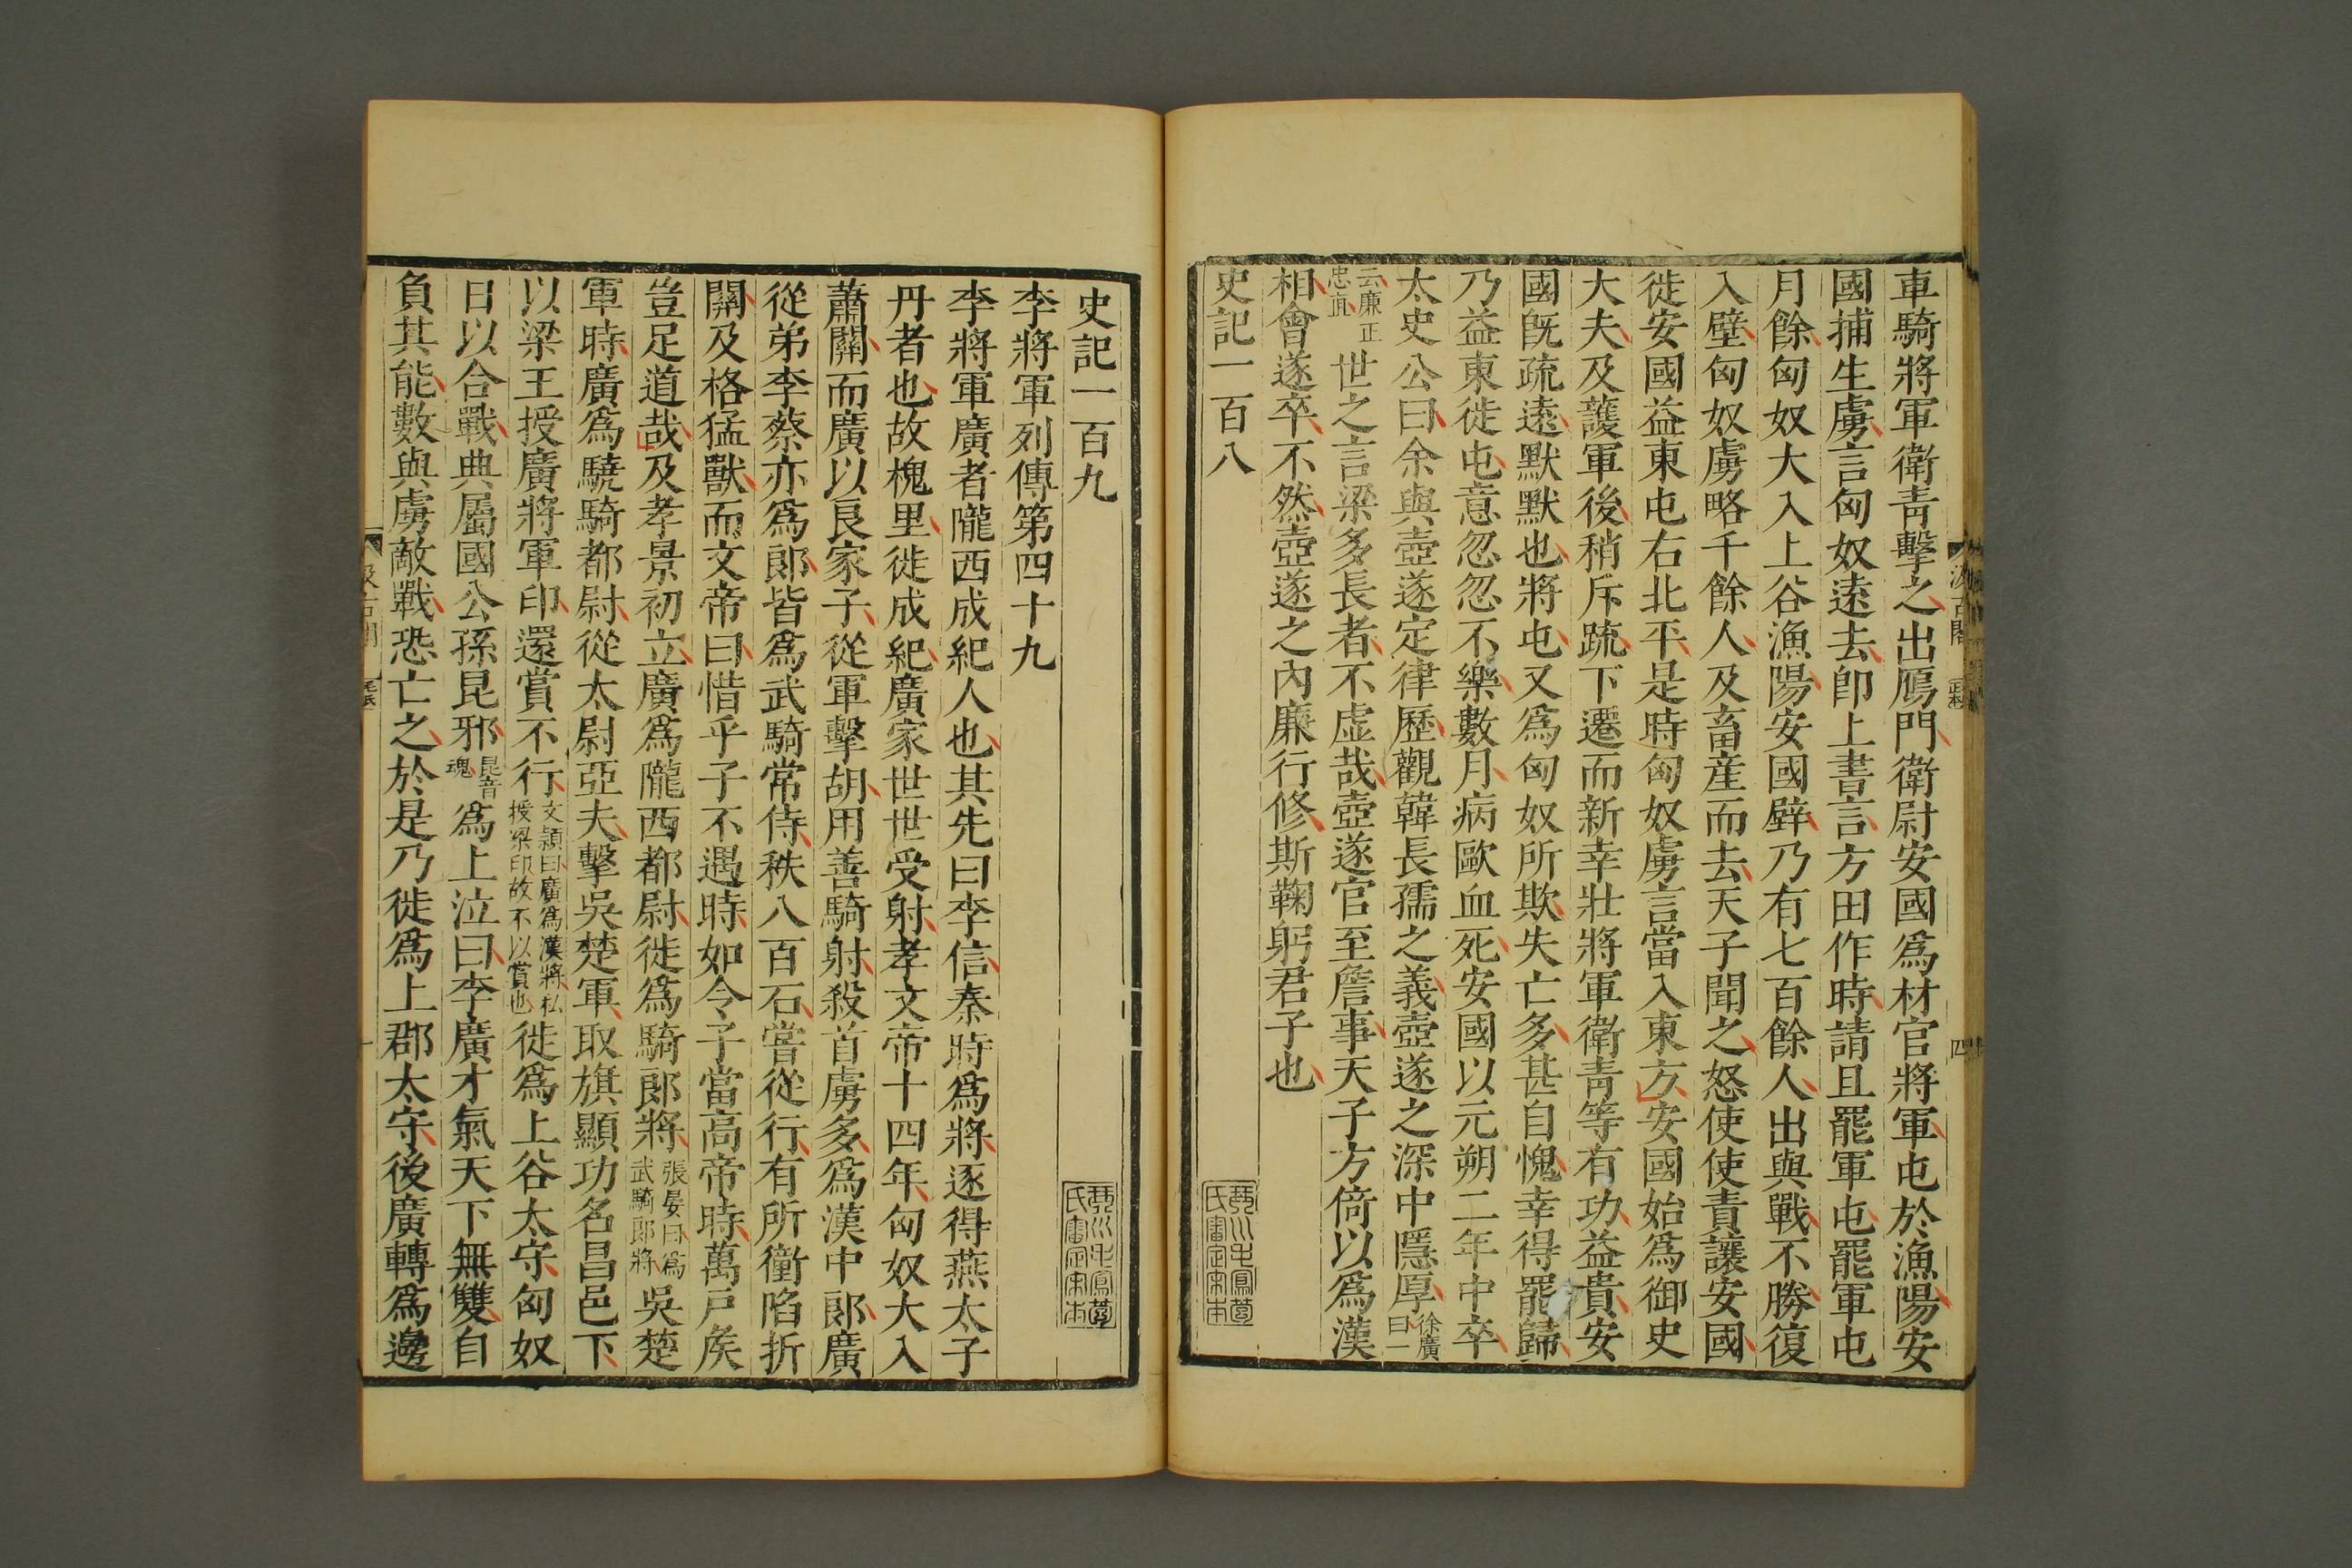 車騎將軍衛青擊之出鴈門衛尉安國爲材官將軍屯於漁陽安
國捕生虜言匈奴遠去卽上書言方田作時請且罷軍屯罷軍屯
月餘匈奴大入上谷漁陽安國壁乃有七百餘人出與戰不勝復
入壁匈奴虜略千餘人及畜產而去天子聞之怒使使責讓安國
徙安國益東屯右北平是時匈奴虜言當入東方安國始爲御史
大夫及護軍後稍斥疏下遷而新幸壯將軍衛青等有功益貴安
國旣疏遠默默也將屯又爲匈奴所欺失亡多甚自愧幸得罷歸
乃益東徙屯意忽忽不樂數月病歐血死安國以元朔二年中卒
太史公曰余與壺遂定律歷觀韓長孺之義壺遂之深中隱厚徐廣曰一
云廉正忠直世之言梁多長者不虛哉壺遂官至詹事天子方倚以爲漢
相會遂卒不然壺遂之內廉行修斯鞠躬君子也
史記一百八
汲古閣
四
史記一百九
李將軍列傳第四十九
李將軍廣者隴西成紀人也其先曰李信秦時爲將逐得燕太子
丹者也故槐里徙成紀廣家世世受射孝文帝十四年匈奴大入
蕭關而廣以良家子從軍擊胡用善騎射殺首虜多爲漢中郎廣
從弟李蔡亦爲郎皆爲武騎常侍秩八百石嘗從行有所衝陷折
關及格猛獸而文帝曰惜乎子不遇時如令子當高帝時萬戶矦
豈足道哉及孝景初立廣爲隴西都尉徙爲騎郎將張晏曰爲武騎郎將吳楚
軍時廣爲驍騎都尉從太尉亞夫擊吳楚軍取旗顯功名昌邑下
以梁王授廣將軍印還賞不行文頴曰廣爲漢將私授梁印故不以賞也徙爲上谷太守匈奴
日以合戰典屬國公孫昆邪昆音魂爲上泣曰李廣才氣天下無雙自
負其能數與虜敵戰恐亡之於是乃徙爲上郡太守後廣轉爲邊